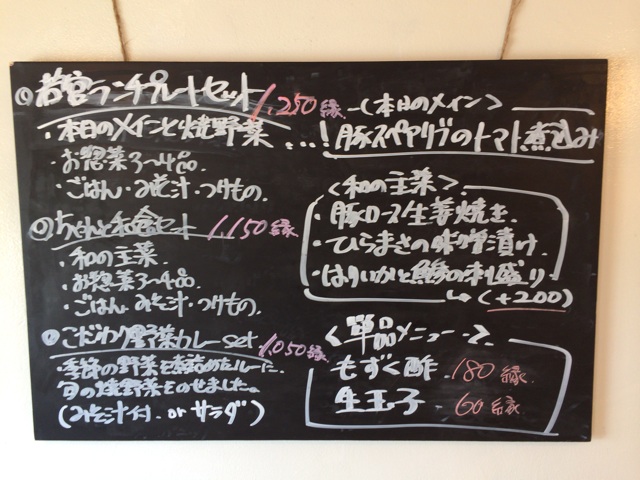 ◎若宮ランチプレートセット 1,250縁
・本日のメインと焼野菜 ...!
・お惣菜3〜4品
・ごはん・みそ汁・つけもの。
◎ちゃんと和食セット 1,150縁
・和の主菜
・お惣菜3〜4品
・ごはん・みそ汁・つけもの。
◎こだわり野菜カレーset 1,050縁
季節の野菜を 旬の焼野菜をのせました。
(みそ汁付 or サラダ)
<本日のメイン>
豚スペアリブのトマト煮込み
<和の主菜>
・豚ロース生姜焼き
・ひらまさの味噌漬け
・はりいかと の刺し盛り
↳(+200)
<単品メニュー>
もずく酢 180縁
生玉子 60縁